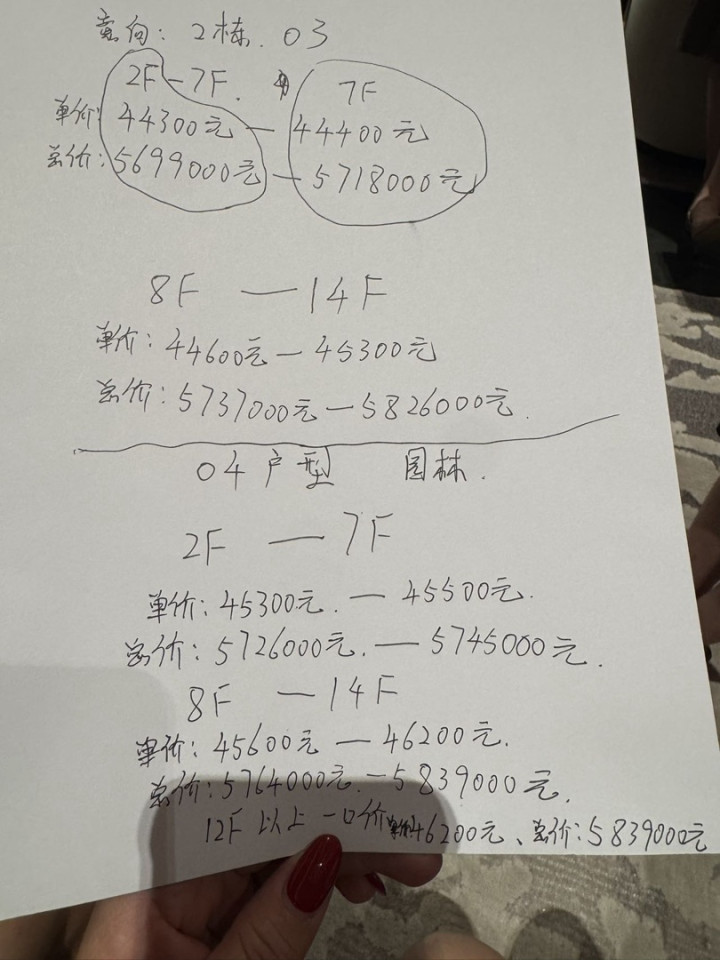 意向: 2栋. 03
2F-7F. 7F
单价: 44300元 — 44400元
总价: 5699000元 — 5718000元
8F — 14F
单价: 44600元 — 45300元
总价: 5737000元 — 5826000元.
04户型 园林.
2F — 7F
单价: 45300元. — 45500元.
总价: 5726000元. — 5745000元.
8F — 14F
单价: 45600元 — 46200元.
总价: 5764000元. — 5839000元.
12F 以上 一口价 单价46200元、总价: 5839000元